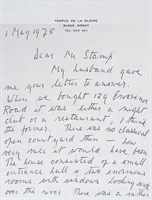 TEMPLE DE LA GLOIRE
91400 ORSAY
1 May 1975
Dear Mr Stamp
My husband gave
me your letter to answer.
When we bought 129 Grosvenor
Road it was either a night
club or a restaurant, I think
the former. There was no classical
open courtyard then — how
very nice it would have been.
The house consisted of a small
entrance hall & two enormous
rooms with windows looking
over the river. There was a rather